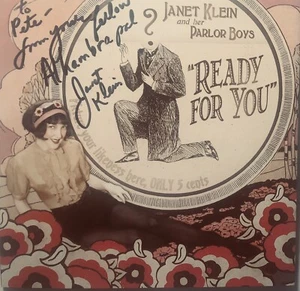 To
Pete -
from your fellow
Alhambra pal
Janet
Klein
JANET KLEIN
and her
PARLOR BOYS
?
"READY
FOR YOU"
your likeness here, ONLY 5 cents